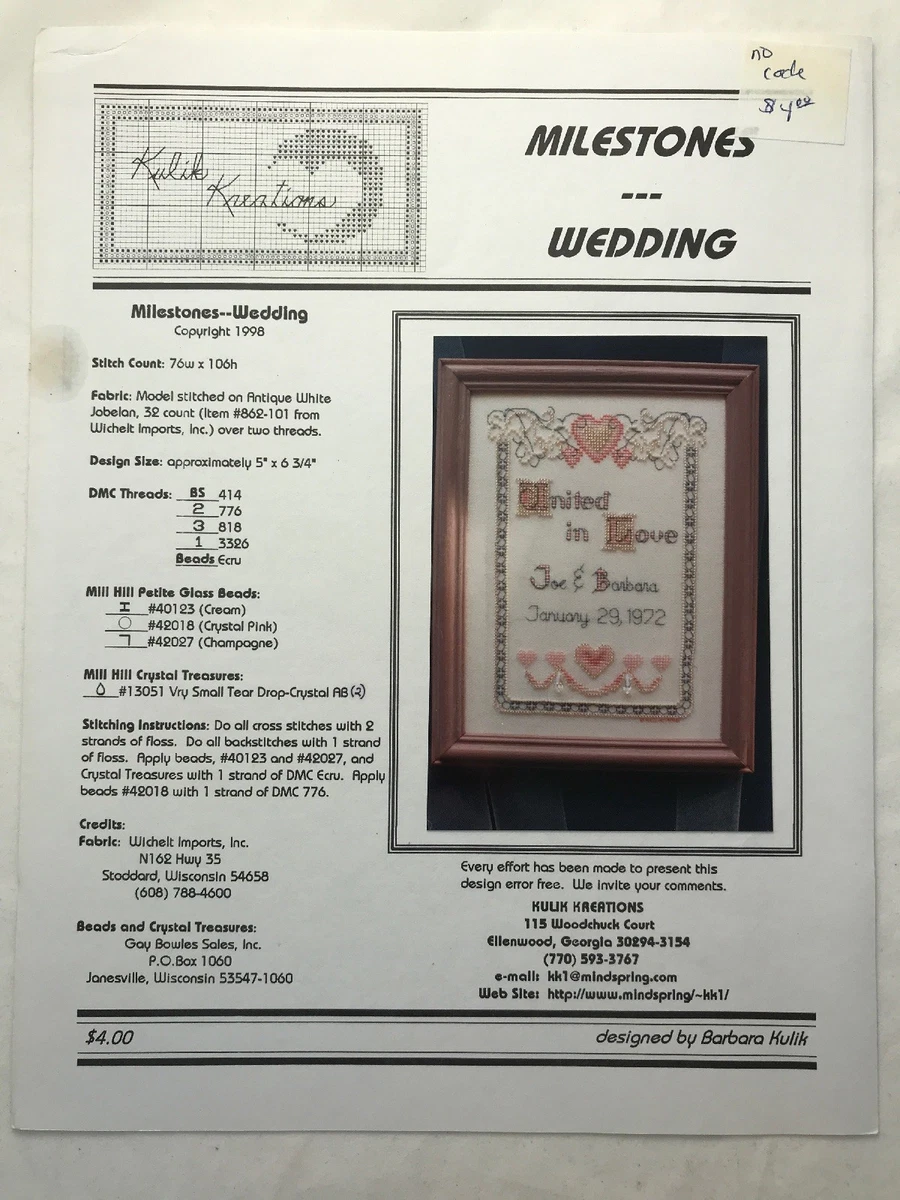 no
code
$4.00
Kulik
Kreations
MILESTONES
---
WEDDING
Milestones--Wedding
Copyright 1998
Stitch Count: 76w x 106h
Fabric: Model stitched on Antique White
Jobelan, 32 count (Item #862-101 from
Wichelt Imports, Inc.) over two threads.
Design Size: approximately 5" x 6 3/4"
DMC Threads: BS 414
2 776
3 818
1 3326
Beads Ecru
Mill Hill Petite Glass Beads:
#40123 (Cream)
#42018 (Crystal Pink)
#42027 (Champagne)
Mill Hill Crystal Treasures:
#13051 Vry Small Tear Drop-Crystal AB (2)
Stitching Instructions: Do all cross stitches with 2
strands of floss. Do all backstitches with 1 strand
of floss. Apply beads, #40123 and #42027, and
Crystal Treasures with 1 strand of DMC Ecru. Apply
beads #42018 with 1 strand of DMC 776.
Credits:
Fabric: Wichelt Imports, Inc.
N162 Hwy 35
Stoddard, Wisconsin 54658
(608) 788-4600
Beads and Crystal Treasures:
Gay Bowles Sales, Inc.
P.O.Box 1060
Janesville, Wisconsin 53547-1060
United
in Love
Joe & Barbara
January 29, 1972
Every effort has been made to present this
design error free. We invite your comments.
KULIK KREATIONS
115 Woodchuck Court
Ellenwood, Georgia 30294-3154
(770) 593-3767
e-mail: kk1@mindspring.com
Web Site: http://www.mindspring/~kk1/
$4.00
designed by Barbara Kulik